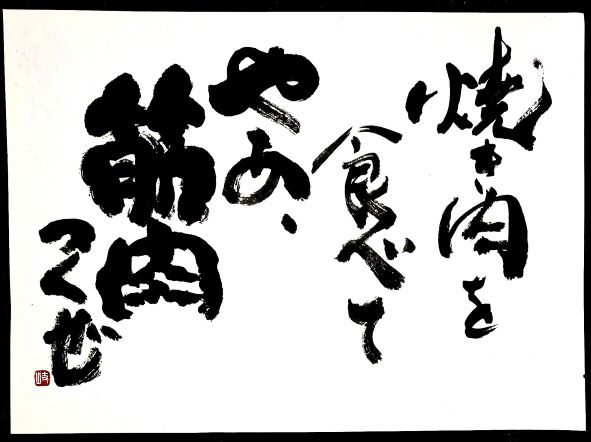 焼き肉を
食べて
やあ、
筋肉
つくぜ